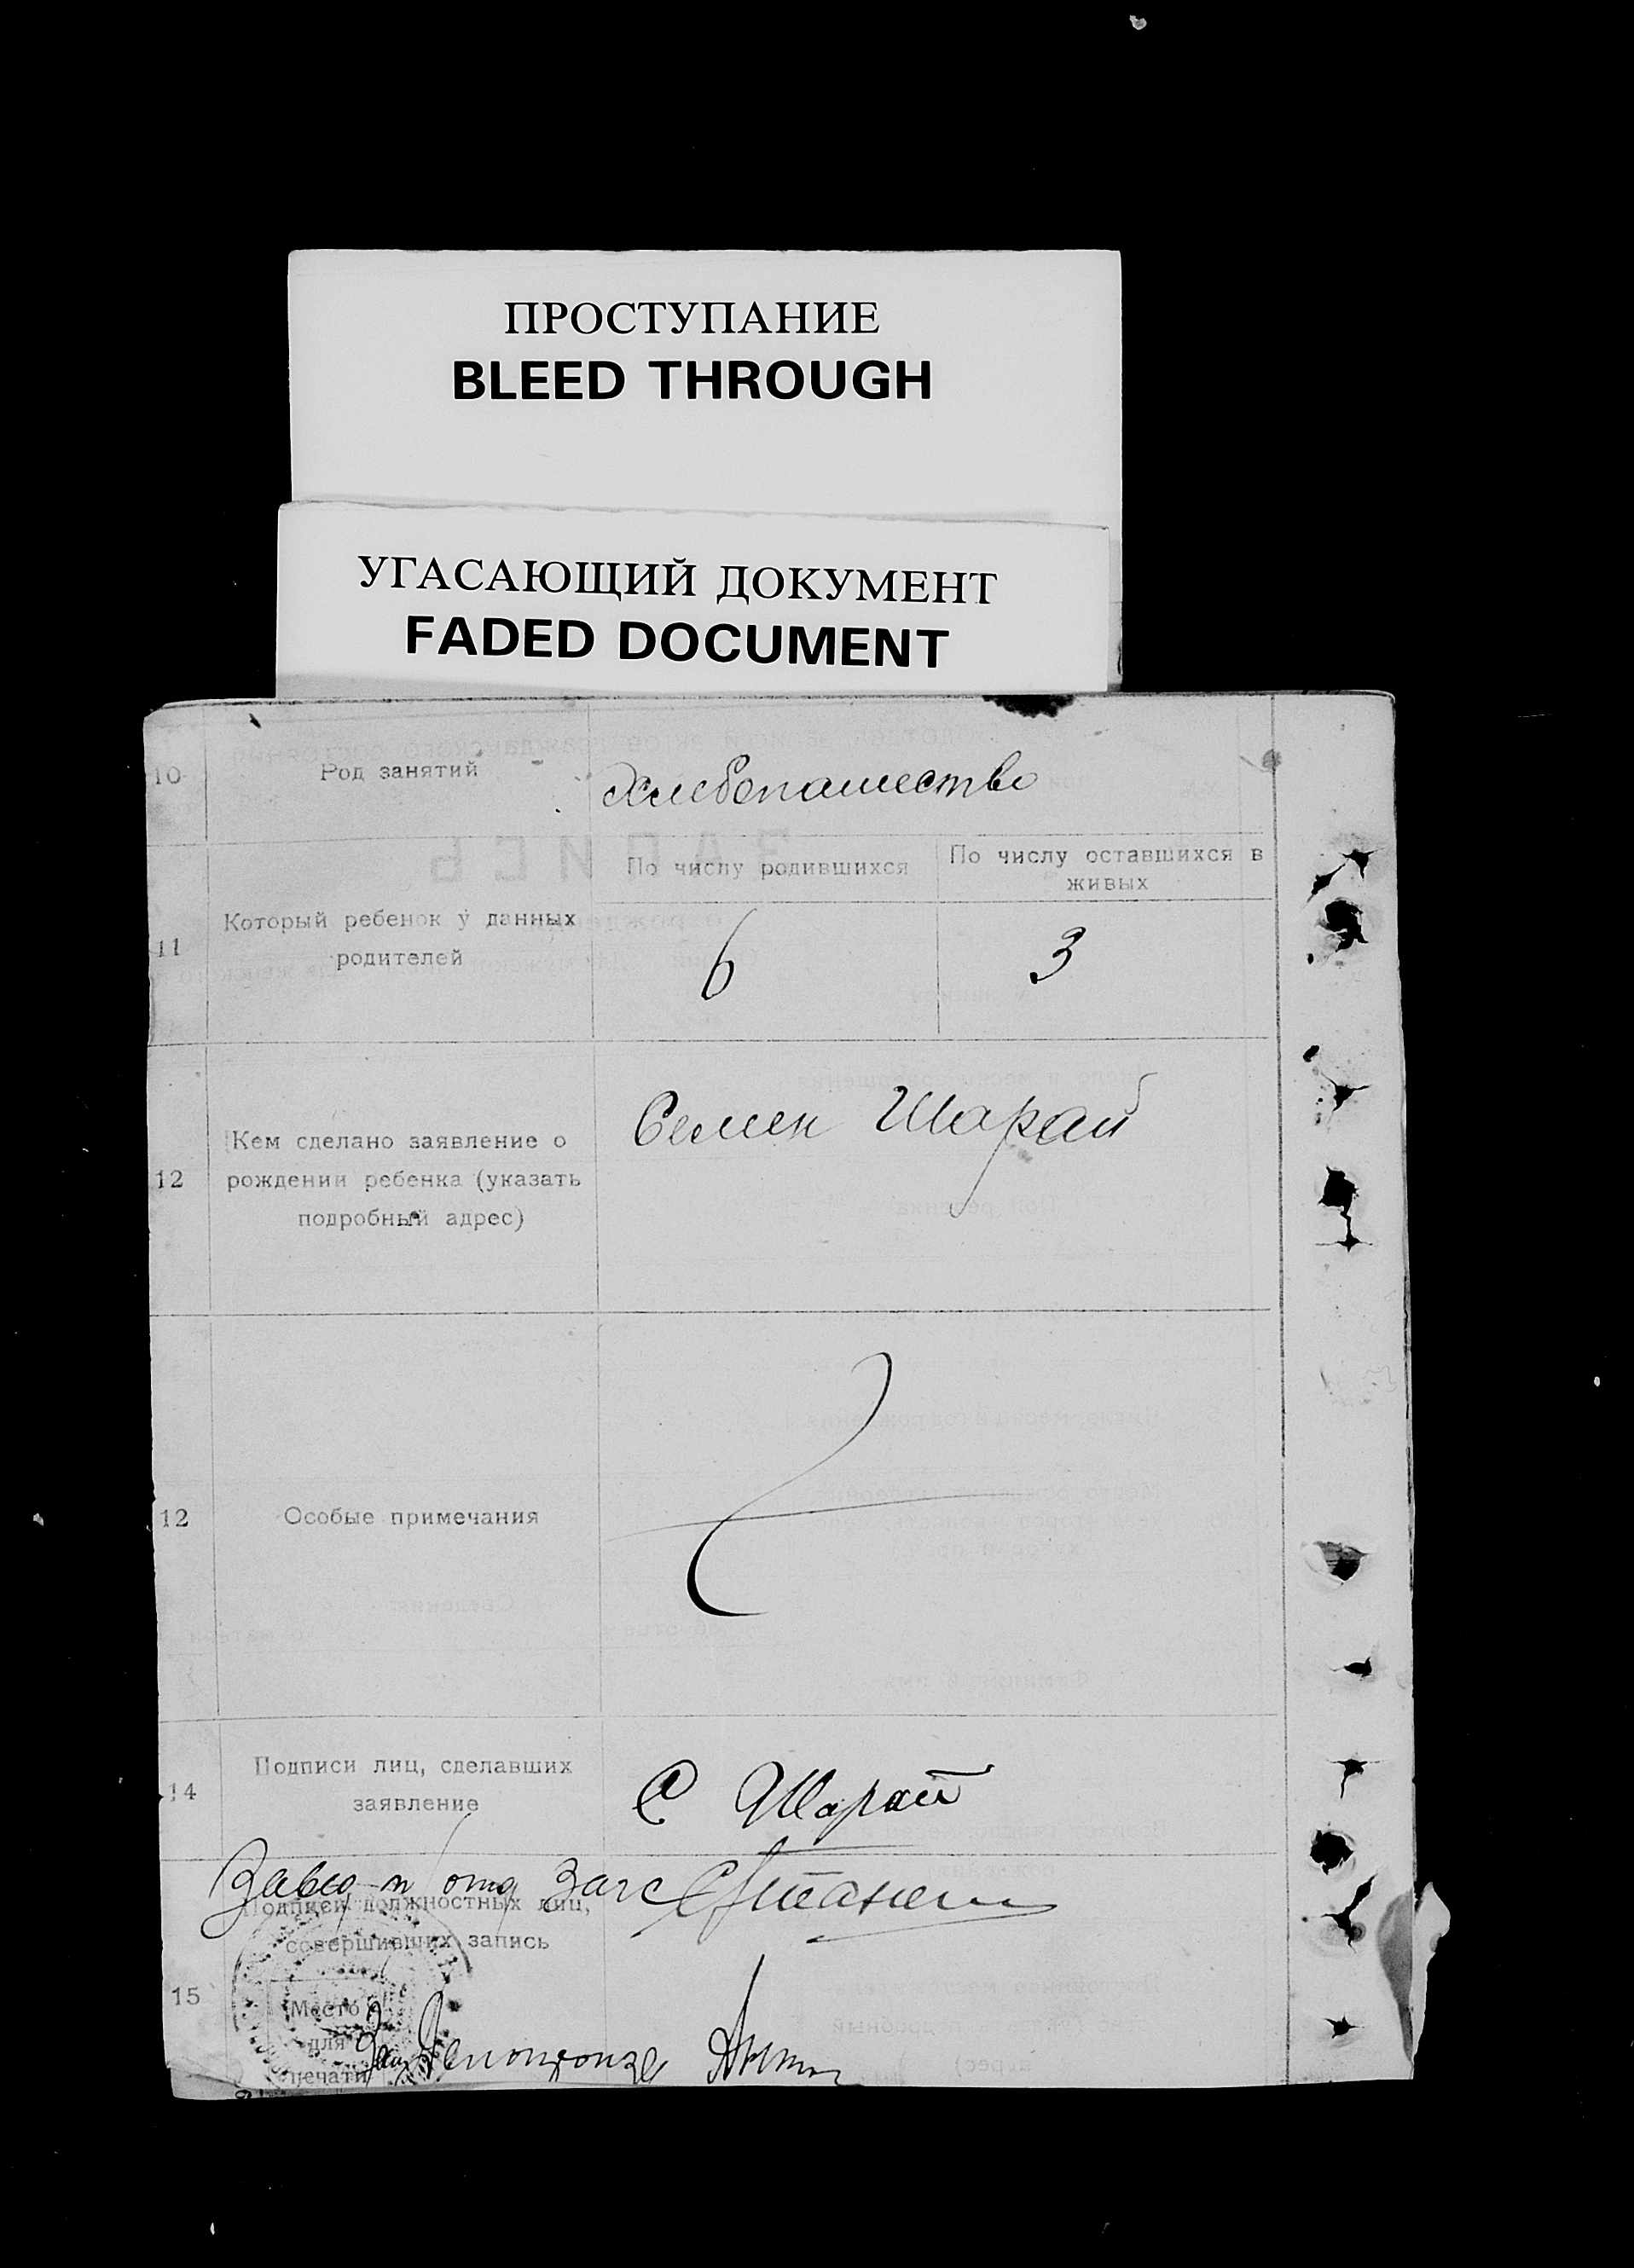 ПРОСТУПАНИЕ
BLEED THROUGH
УГАСАЮЩИЙ ДОКУМЕНТ
FADED DOCUMENT
10 Род занятий Хлебопашество
По числу родившихся По числу оставшихся в
живых
11 Который ребенок у данных
родителей 6 3
Кем сделано заявление о Семен Шарай
12 рождении ребенка (указать
подробный адрес)
12 Особые примечания
14 Подписи лиц, сделавших
заявление С Шарай
отд Загс
Подписи должностных лиц,
совершивших запись
15 Место
для
печати